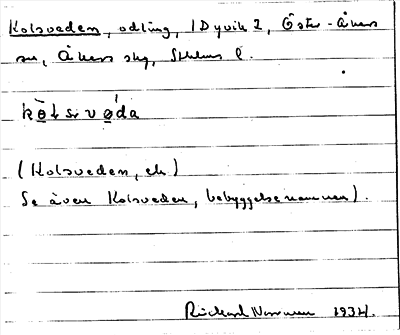 Kolsveden, odling, 1 Dyvik 2, Öster-Åkers
sn, Åkers skg, Sthlms l.
(Kolsveden, ek)
Se även Kolsveden, bebyggelsenamnen).
Rickard 1934.